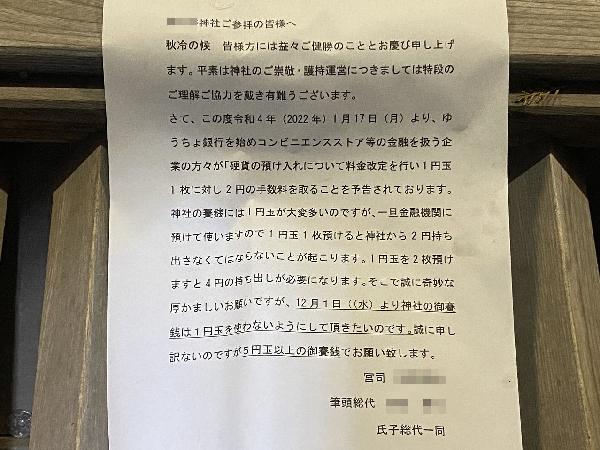 神社ご参拝の皆様へ
秋冷の候　皆様方には益々ご健勝のこととお慶び申し上げ
ます。平素は神社のご崇敬・護持運営につきましては特段の
ご理解ご協力を戴き有難うございます。
さて、この度令和４年（2022年）1月17日（月）より、ゆ
うちょ銀行を始めコンビニエンスストア等の金融を扱う企
業の方々が「硬貨の預け入れについて料金改定を行い１円玉
１枚に対し２円の手数料を取ることを予告されております。
神社の賽銭には１円玉が大変多いのですが、一旦金融機関に
預けて使いますので１円玉１枚預けると神社から２円持ち
出さなくてはならないことが起こります。１円玉を２枚預け
ますと４円の持ち出しが必要になります。そこで誠に奇妙な
厚かましいお願いですが、12月１日（（水）より神社の御賽
銭は１円玉を使わないようにして頂きたいのです。誠に申し
訳ないのですが５円玉以上の御賽銭でお願い致します。
宮司
筆頭総代
氏子総代一同